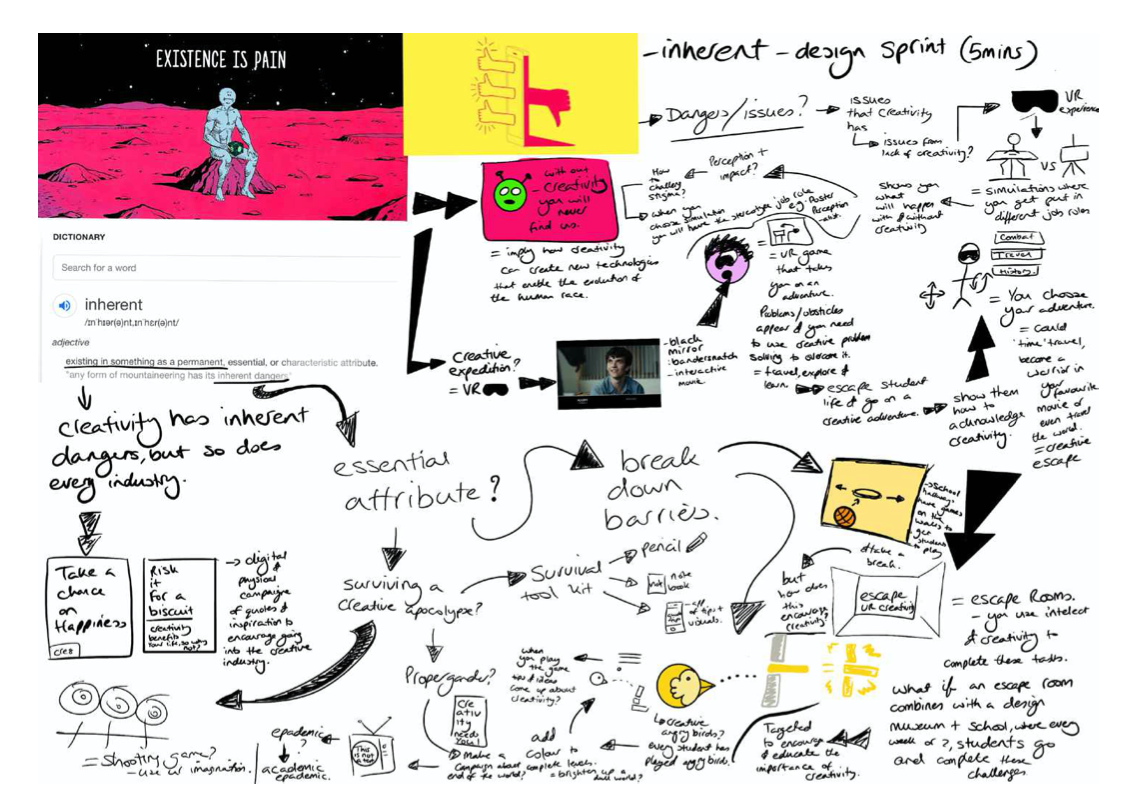 EXISTENCE IS PAIN
-inherent - design sprint (5mins)
DICTIONARY
Search for a word
inherent
/ɪnˈhɪər(ə)nt,ɪnˈhɛr(ə)nt/
adjective
existing in something as a permanent, essential, or characteristic attribute.
"any form of mountaineering has its inherent dangers"
creativity has inherent
dangers, but so does
every industry.
Take a
chance
on
Happiness
cre8
Risk
it
for a
biscuit
creativity
benefits
your life, so why
not?
→ digital
&
physical
campaigns
of quotes &
inspiration to
encourage going
into the creative
industry.
= Shooting game?
- use ur imagination.
essential
attribute?
surviving a
creative apocalypse?
Survival
tool kit
pencil
not
note
book
of tips &
visuals.
Propergander?
Cre
ativ
ity
needs
you!
Make a
campaign about
end of the world?
epademic
?
academic
epademic.
This
is not
a test
add
colour to
complete levels.
= brighten up a
dull world?
when
you play
the game
come up about
creativity?
creative
angry birds?
every student has
played angry birds.
Targeted
to encourage
& educate the
importance of
creativity.
break
down
barriers.
→ School
hallways
have games
on the
walls to
get
students
to play
& take a
break.
but
how does
this
encourage
creativity?
escape
VR creativity
= escape Rooms.
- you use intelect
& creativity to
complete these tasks.
what if an escape room
combines with a design
museum + school, where every
week or 2, students go
and complete these
challenges.
→ Dangers/issues?
→ issues
that creativity
has
issues from
lack of creativity?
VR
experience
VS
= simulations where
you get put in
different job roles
shows you
what
will happen
with & without
creativity
Perception +
impact?
How
to
challenge
stigmas?
when you
choose simulation
you will have the stereotype job role
e.g. Poster
Perception
with out
- creativity
you will
never
find us.
= imply how creativity
can create new technologies
that enable the evolution of
the human race.
Creative
expedition?
= VR
- black
mirror
: bandersnatch
- interactive
movie
= VR game
that takes
you on an
adventure.
Problems/obsticles
appear & you need
to use creative problem
solving to overcome it.
= travel, explore &
learn.
escape student
life & go on a
creative adventure.
show them
how to
acknowledge
creativity.
Combat
Travel
History
= You choose
your adventure.
= could
'time' travel,
become a
warrior in
your
favourite
movie or
even travel
the world.
= creative
escape